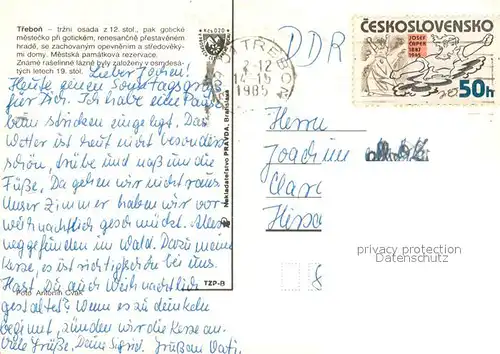 Třeboň – tržní osada z 12. stol., pak gotické
městečko při gotickém, renesančně přestavěném
hradě, se zachovaným opevněním a středověký-
mi domy. Městská památková rezervace.
Známé rašelinné lázně byly založeny v osmdesá-
tých letech 19. stol.
Lieber Jochen!
Heute einen Sonntagsgruß
für Dich. Ich habe eine Pause
beim stricken eingelegt. Das
Wetter ist heut nicht besonders
schön, trübe und naß um die
Füße. Da gehen wir nicht raus.
Unser Zimmer haben wir vor-
weihnachtlich geschmückt. Alles
weggefunden im Wald. Dazu meine
Kerze, es ist richtig schön bei uns.
Hast Du auch weihnachtlich
gestaltet? Wenn es zu dunkeln
beginnt, zünden wir die Kerze an.
Viele Grüße, Deine Sigrid. Grüß an Vati.
Foto Antonín Cvak
Nakladatelství PRAVDA, Bratislava
TZP-B
TŘEBOŇ
2-12
14-15
1985
DDR
ČESKOSLOVENSKO
JOSEF
ČAPEK
1887
1945
50h
Herrn
Joachim
Clara
Hirsa
8
privacy protection
Datenschutz